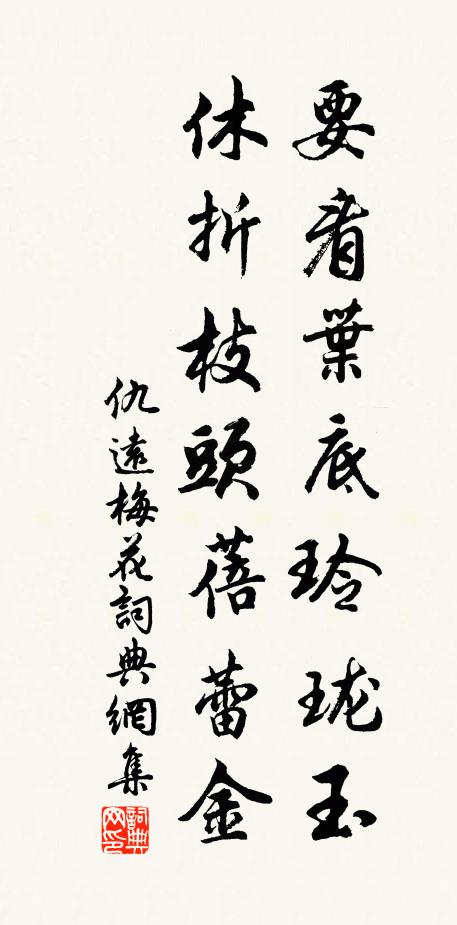 要看葉底玲珑玉
休折枝頭蓓蕾金
仇遠梅花詞典網集
詞典网印